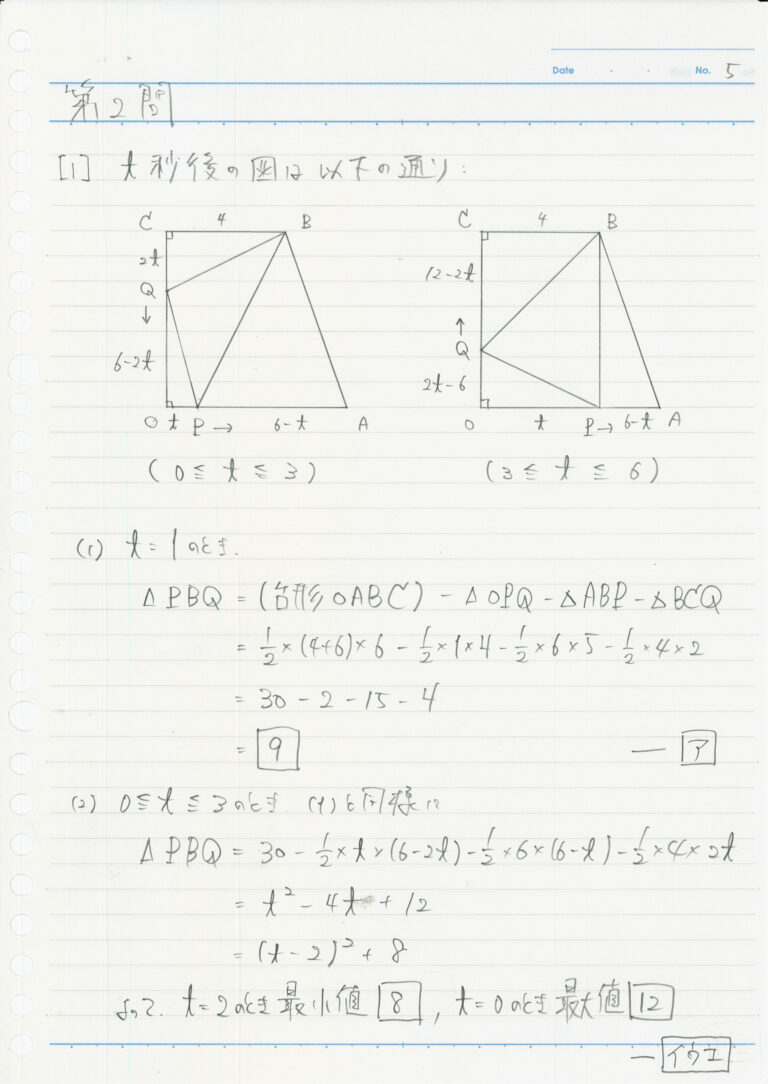 Date ・ ・ No. 5
第2問
[1] t秒後の図は以下の通り:
C 4 B
2t
Q
↓
6-2t
O t P → 6-t A
(0≦t≦3)
C 4 B
12-2t
↑
Q
2t-6
O t P→ 6-t A
(3≦t≦6)
(1) t=1のとき.
△PBQ = (台形OABC) - △OPQ - △ABP - △BCQ
= 1/2×(4+6)×6 - 1/2×1×4 - 1/2×6×5 - 1/2×4×2
= 30 - 2 - 15 - 4
= 9 — ア
(2) 0≦t≦3のとき. (1)と同様に
△PBQ = 30 - 1/2×t×(6-2t) - 1/2×6×(6-t) - 1/2×4×2t
= t² - 4t + 12
= (t-2)² + 8
よって. t=2のとき最小値 8, t=0のとき最大値 12
— イウエ